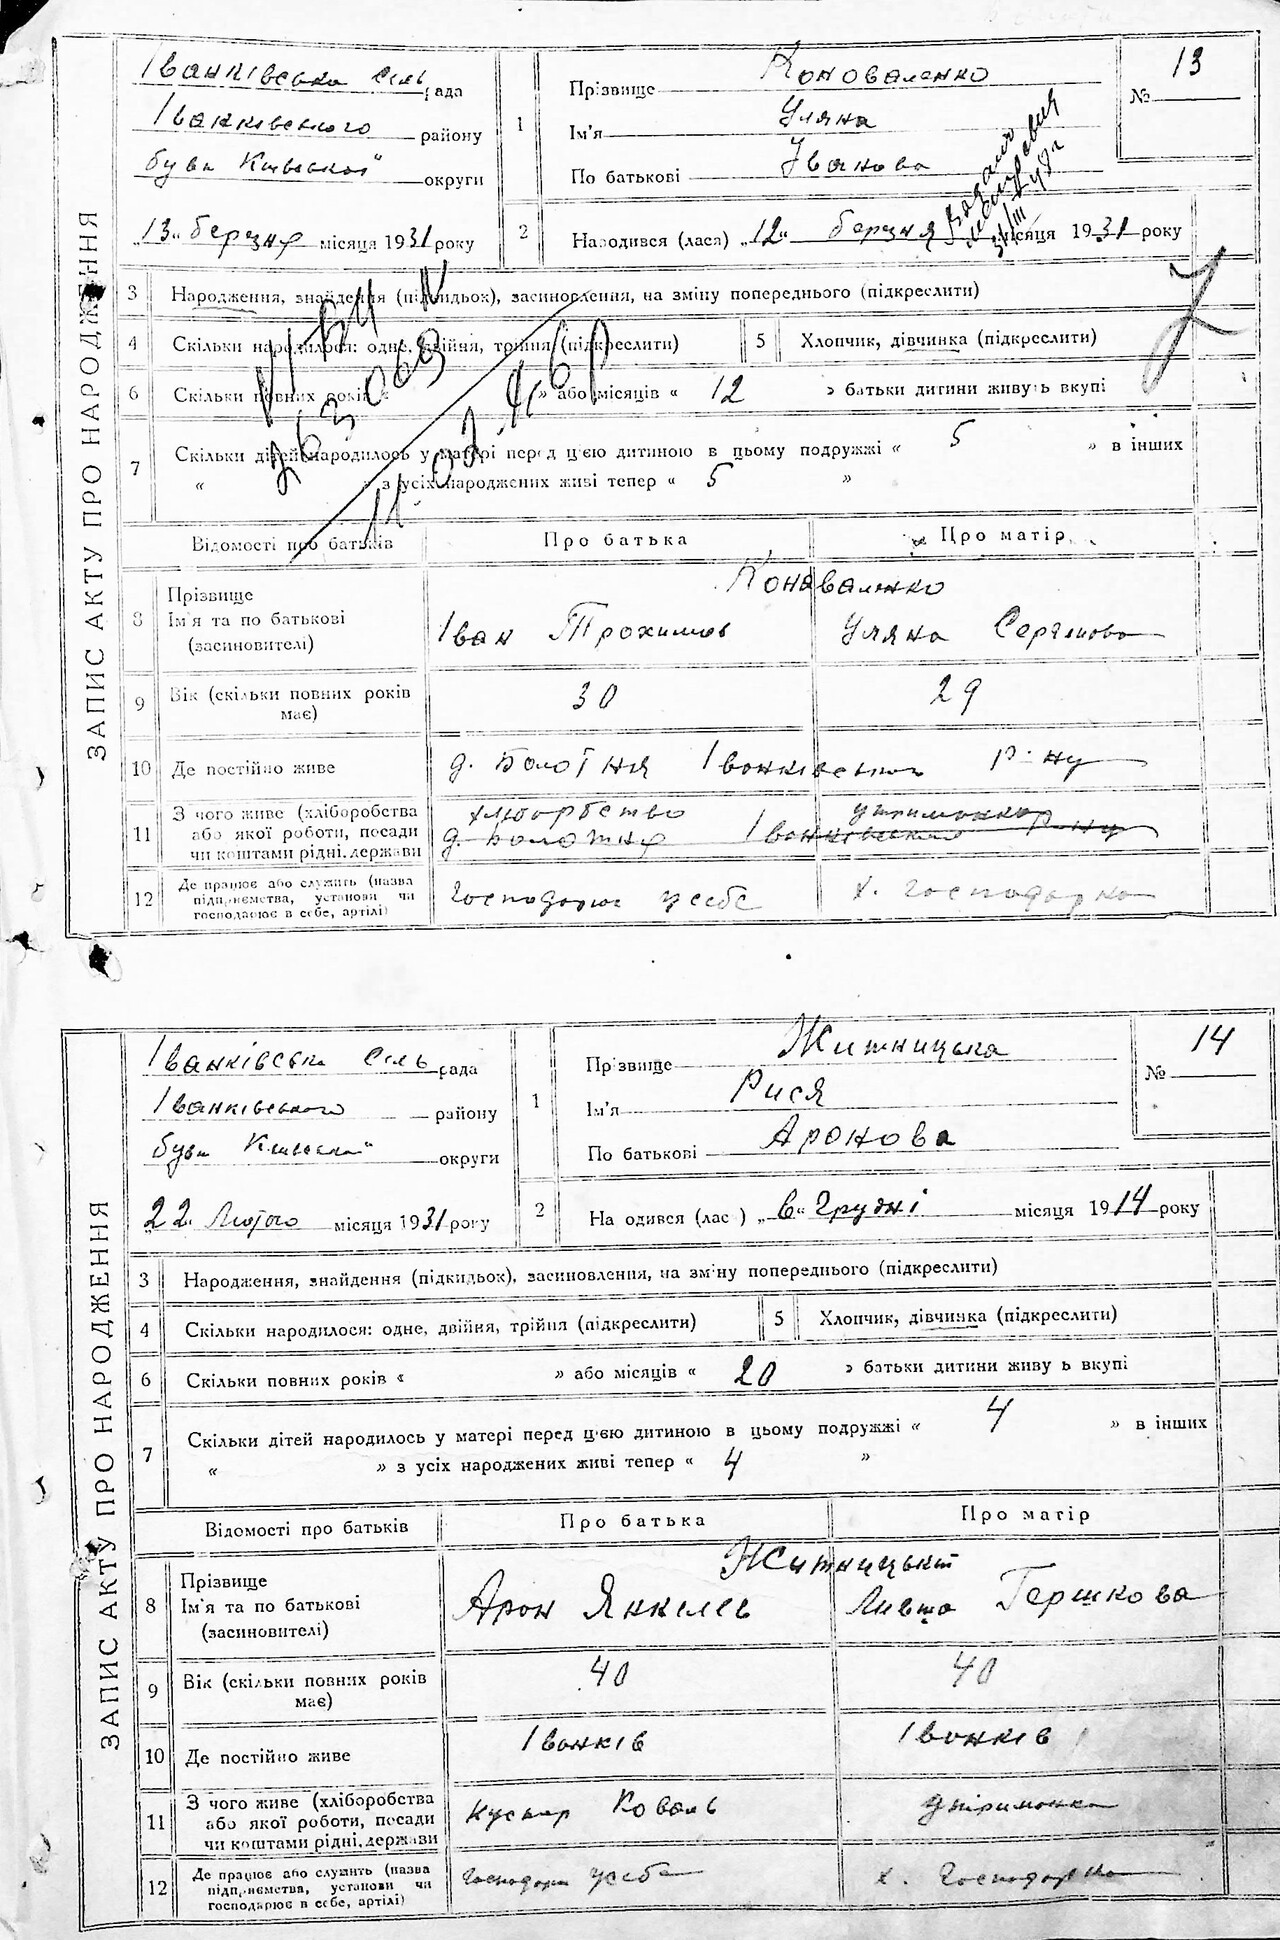 ЗАПИС АКТУ ПРО НАРОДЖЕННЯ
Іванківська сіль рада
Іванківського району
був. Київської округи
„13“ березня місяця 1931 року
1
Прізвище Коноваленко
Ім'я Уляна
По батькові Іванова
№ 13
2 Народився (лася) „12“ березня місяця 1931 року
3 Народження, знайдення (підкидьок), засиновлення, на зміну попереднього (підкреслити)
4 Скільки народилося: одне, двійня, трійня (підкреслити) 5 Хлопчик, дівчинка (підкреслити)
6 Скільки повних років « » або місяців « 12 » батьки дитини живуть вкупі
7 Скільки дітей народилось у матері перед цією дитиною в цьому подружжі « 5 » в інших
« » з усіх народжених живі тепер « 5 »
Відомості про батьків Про батька Про матір
8 Прізвище
Ім'я та по батькові
(засиновителі)
Коноваленко
Іван Трохимов Уляна
9 Вік (скільки повних років має) 30 29
10 Де постійно живе д. Болотня Іванківського р-ну
11 З чого живе (хліборобства або якої роботи, посади чи коштами рідні, держави
хліборобство утриманка
д. Болотня Іванківського р-ну
12 Де працює або служить (назва підприємства, установи чи господарює в себе, артілі)
Господарює у себе х. господарка
ЗАПИС АКТУ ПРО НАРОДЖЕННЯ
Іванківська сіль рада
Іванківського району
був. Київської округи
22 Лютого місяця 1931 року
1
Прізвище Житницька
Ім'я Рися
По батькові Аронова
№ 14
2 На одився (лас ) „в“ Грудні місяця 1914 року
3 Народження, знайдення (підкидьок), засиновлення, на зміну попереднього (підкреслити)
4 Скільки народилося: одне, двійня, трійня (підкреслити) 5 Хлопчик, дівчинка (підкреслити)
6 Скільки повних років « » або місяців « 20 » батьки дитини живу ь вкупі
7 Скільки дітей народилось у матері перед цією дитиною в цьому подружжі « 4 » в інших
« » з усіх народжених живі тепер « 4 »
Відомості про батьків Про батька Про матір
8 Прізвище
Ім'я та по батькові
(засиновителі)
Житницькі
Арон Янкелев Гершкова
9 Вік (скільки повних років має) 40 40
10 Де постійно живе Іванків Іванків
11 З чого живе (хліборобства або якої роботи, посади чи коштами рідні, держави
Кустар Коваль утриманка
12 Де працює або служить (назва підприємства, установи чи господарює в себе, артілі)
Господарює у себе х. Господарка